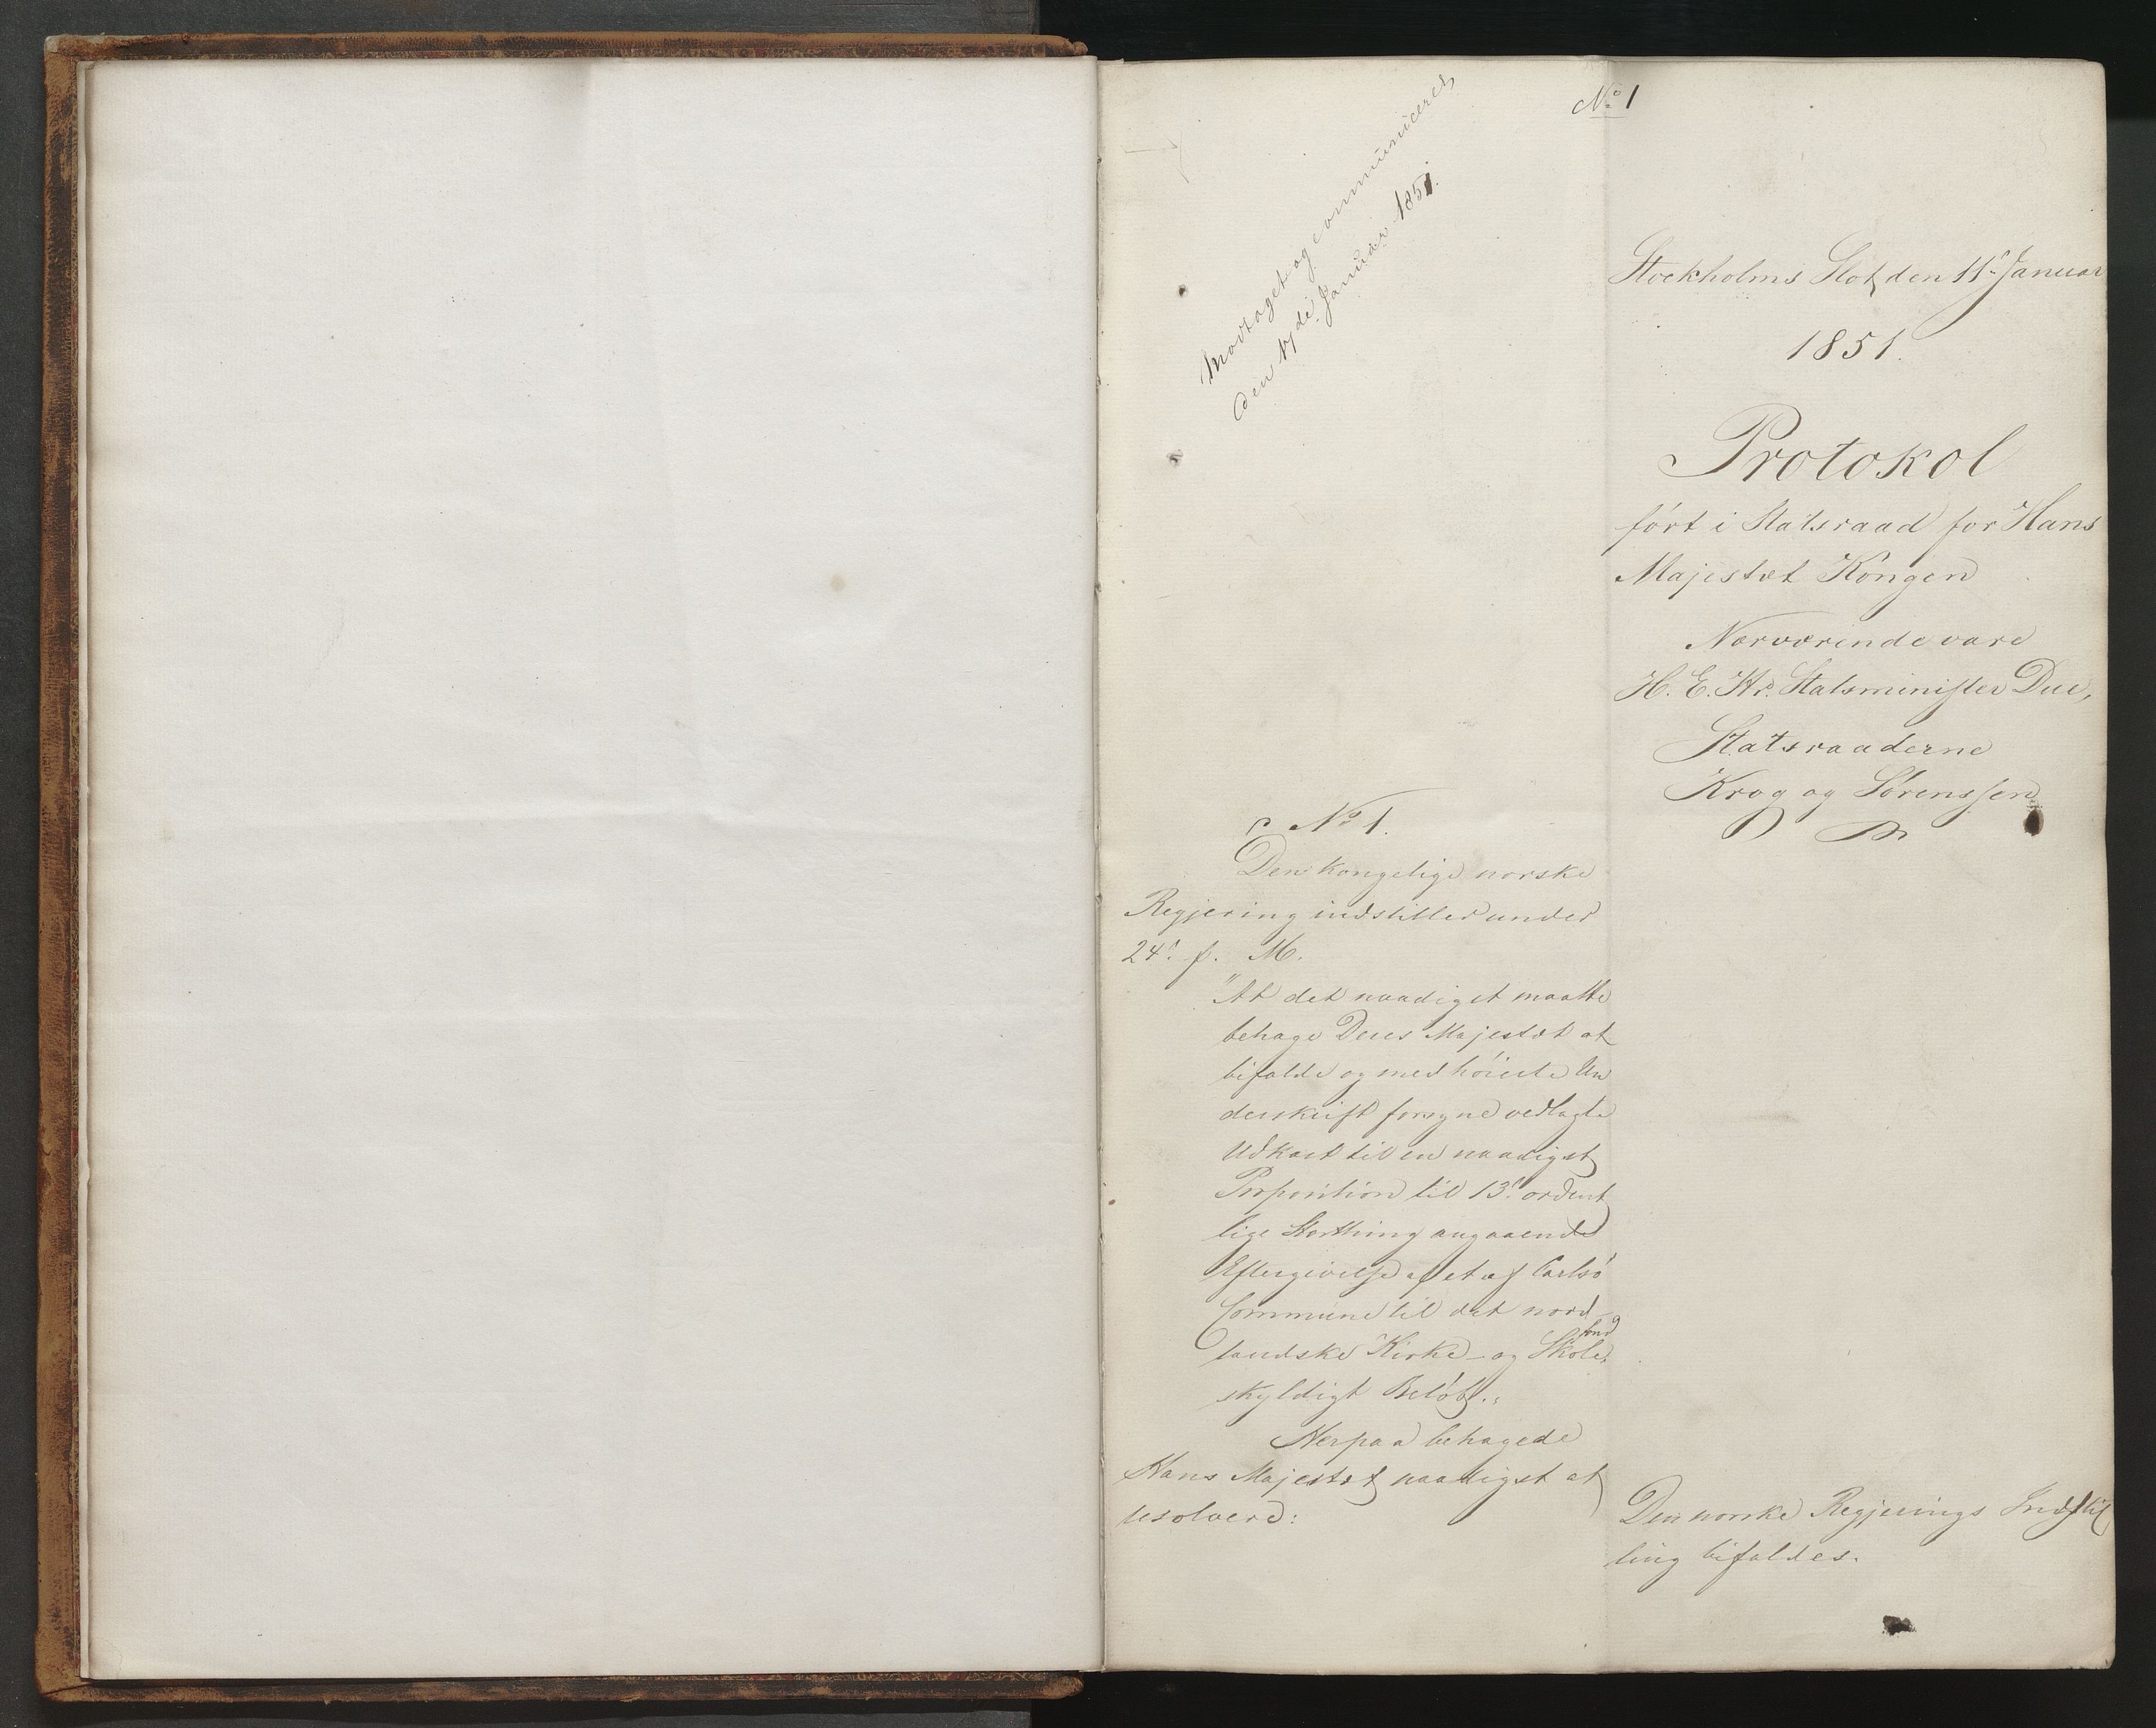 No 1
Modtaget og communiceret
den 17de Januar 1851.
Stockholms Slot den 11te Januar
1851.
Protokol
ført i Statsraad for Hans
Majestæt Kongen
Nærværende vare
H. E. Hr. Statsminister Due,
Statsraaderne
Krog og Sørenssen
No 1.
Den kongelige norske
Regjering indstiller under
24de f. M.
"At det naadigst maatte
behage Deres Majestæt at
bifalde og med høieste Un
derskrift forsyne vedlagte
Udkast til en naadigst
Proposition til 13de ordent
lige Storthing angaaende
Eftergivelse af et af Carlsø
Commune til det nord-
landske Kirke- og Skolefond
skyldigt Beløb."
Herpaa behagede
Hans Majestæt naadigst at
resolvere:
Den norske Regjerings Indstil
ling bifaldes.